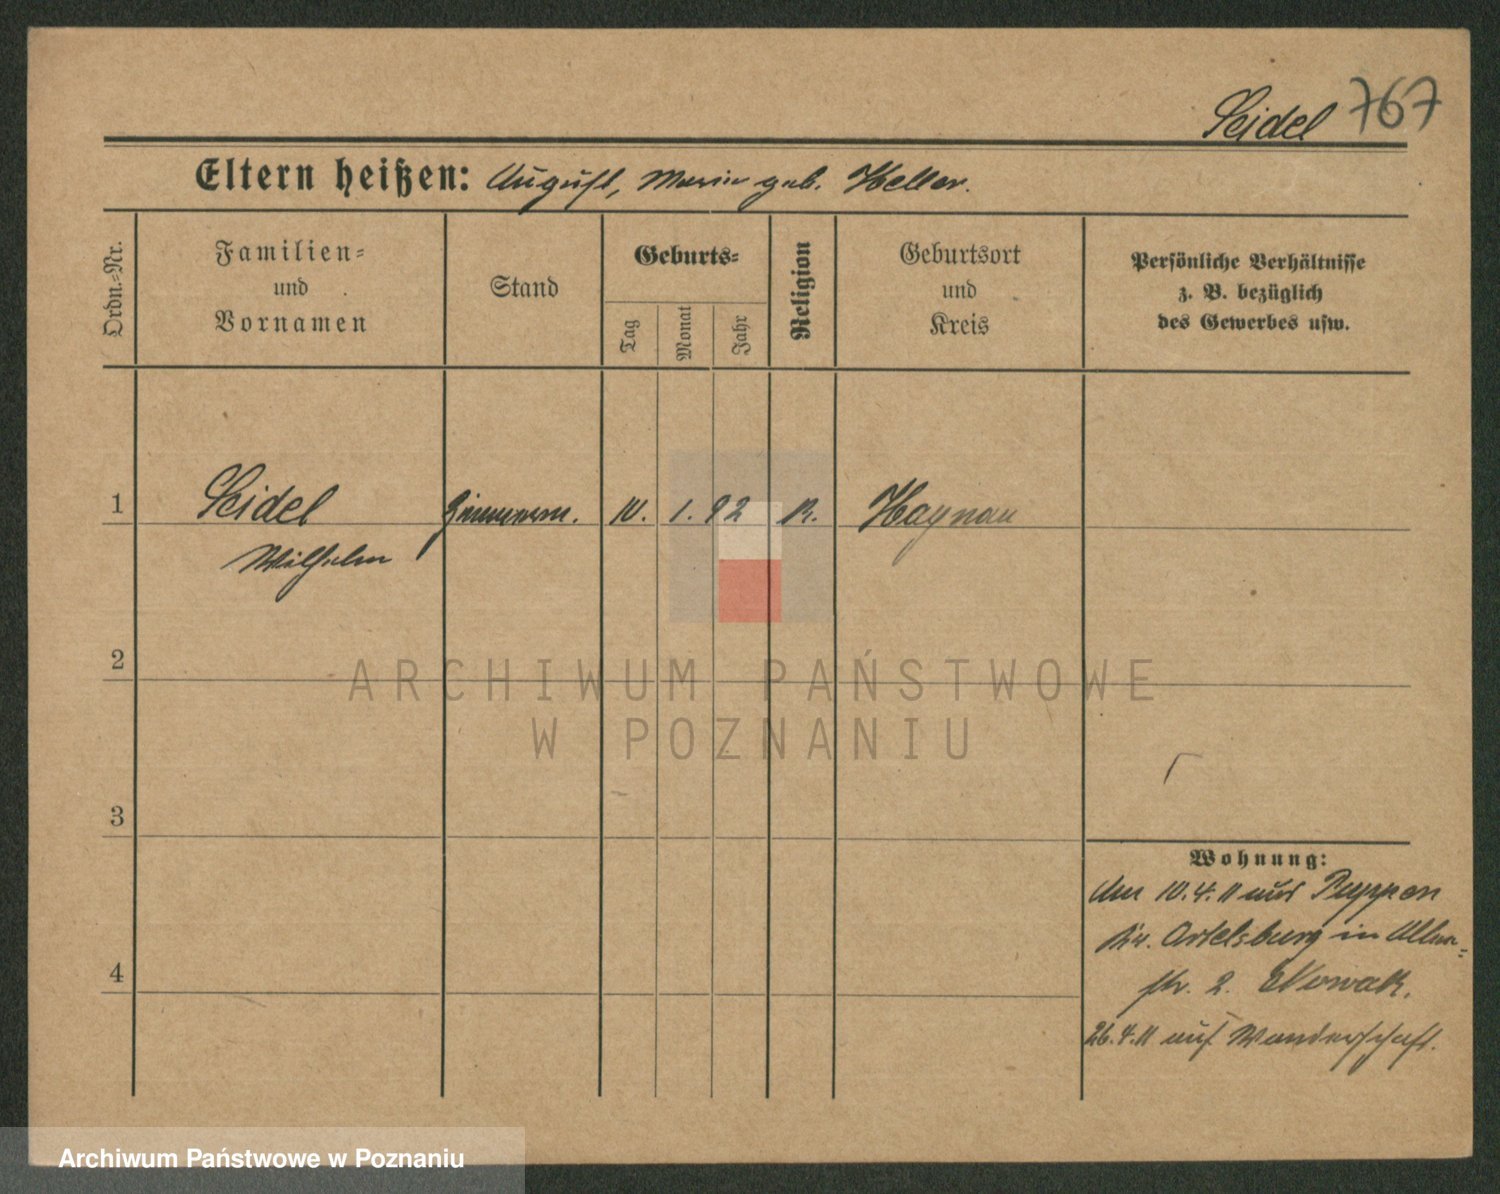 Seidel 767
Eltern heißen: August, Marie geb. Heller.
Ordn.-Nr.
Familien-
und
Vornamen
Stand
Geburts-
Tag
Monat
Jahr
Religion
Geburtsort
und
Kreis
Persönliche Verhältnisse
z. B. bezüglich
des Gewerbes usw.
1 Seidel Zimmerm. 10. 1. 92 K. Haynau
Wilhelm
2
ARCHIWUM PAŃSTWOWE
W POZNANIU
3
Wohnung:
Am 10.4.11 aus Puppen
Kr. Ortelsburg in
4
str. 2. Nowak.
26.4.11 auf Wanderschaft.
Archiwum Państwowe w Poznaniu